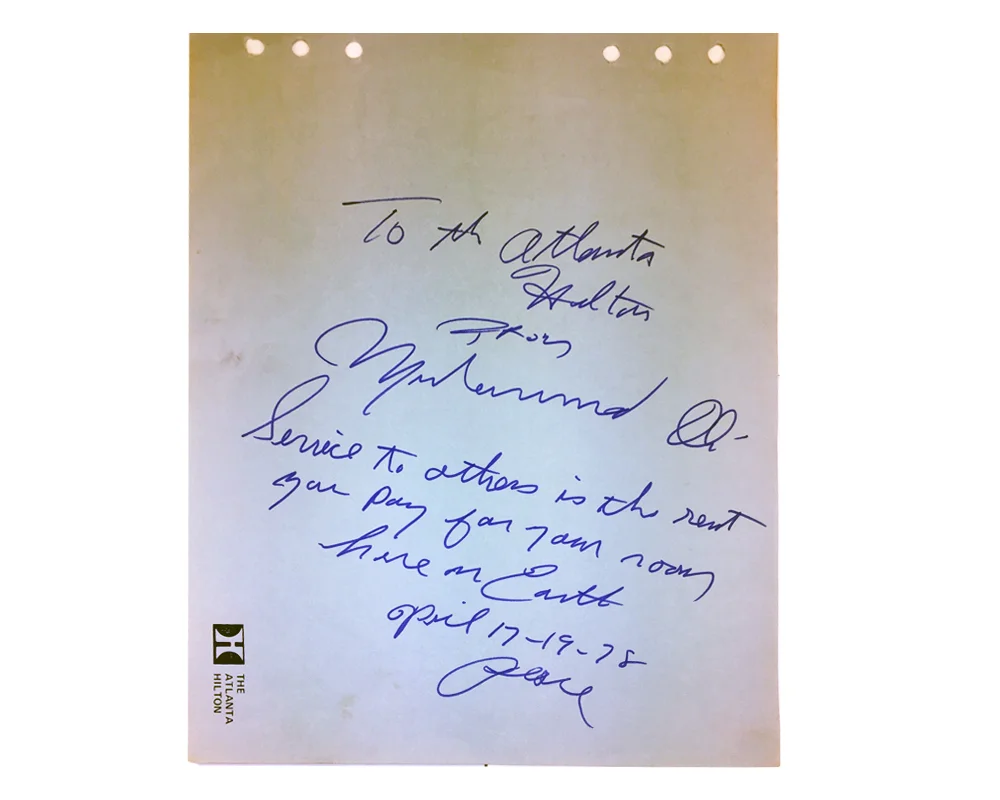 To th Atlanta
Hilton
From
Muhammad Ali
Service to others is the rent
you pay for your room
here on Earth
April 17-19-78
Peace
THE
ATLANTA
HILTON